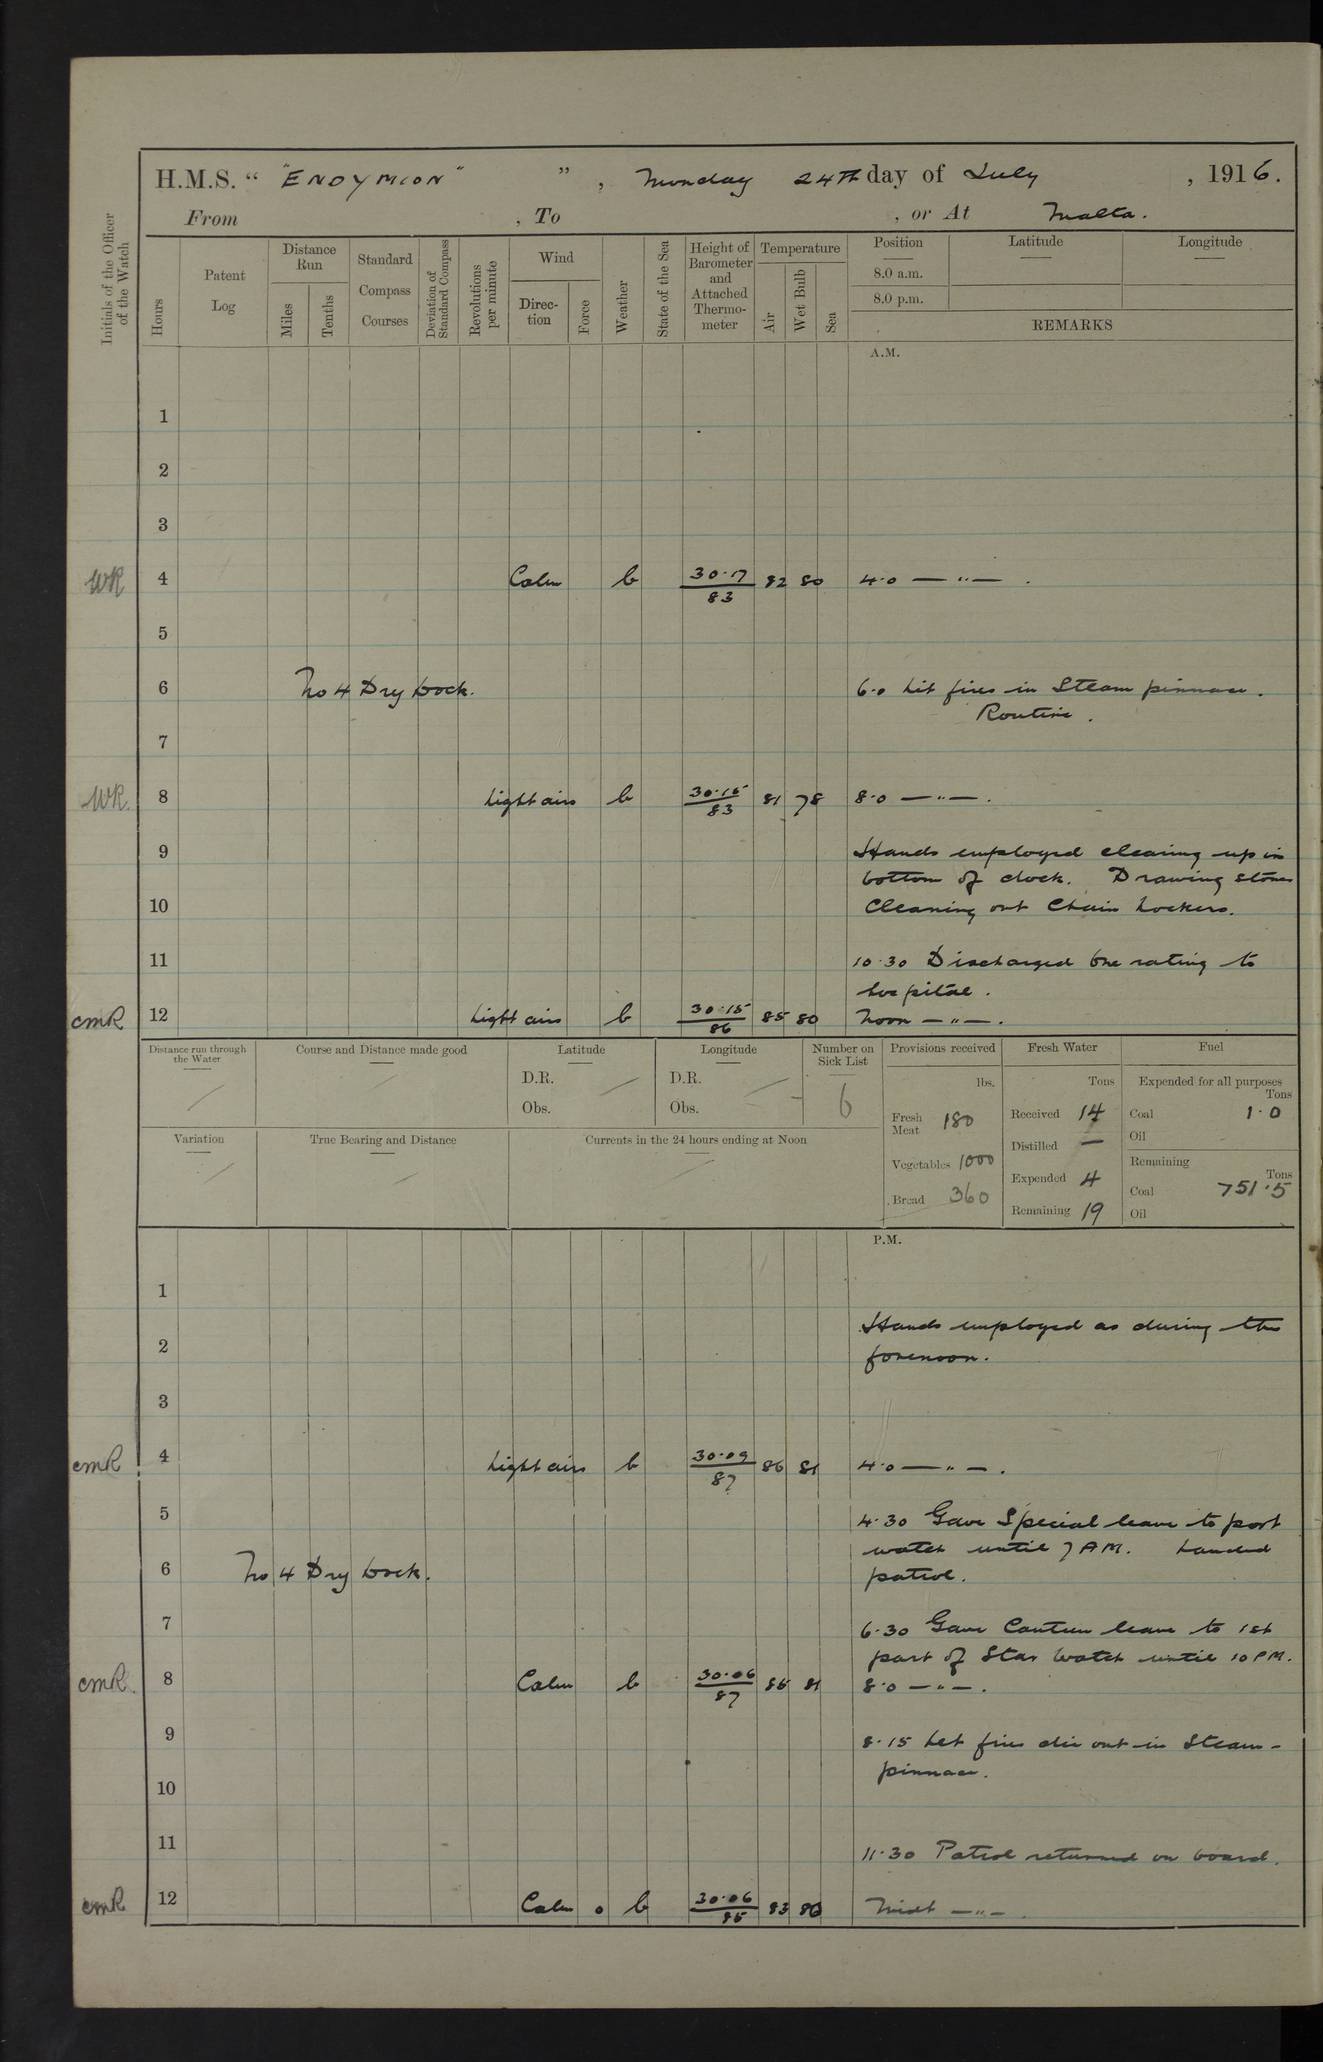 H.M.S. “ "ENDYMION" ” , Monday 24TH day of July , 1916.
From , To , or At Malta.
Initials of the Officer of the Watch
Hours
Patent Log
Distance Run
Miles
Tenths
Standard Compass Courses
Deviation of Standard Compass
Revolutions per minute
Wind
Direc-tion
Force
Weather
State of the Sea
Height of Barometer and Attached Thermo-meter
Temperature
Air
Wet Bulb
Sea
Position Latitude Longitude
8.0 a.m.
8.0 p.m.
REMARKS
A.M.
1
2
3
WR 4 Calm b 30.17/83 82 80 4.0 — " — .
5
6 No 4 Dry Dock. 6.0 Lit fires in Steam pinnace.
Routine.
7
WR. 8 Light airs b 30.15/83 81 78 8.0 — " — .
9 Hands employed clearing up in
bottom of dock. Drawing stores
10 Cleaning out Chain Lockers.
11 10.30 Discharged One rating to
hospital.
CMR 12 Light airs b 30.15/86 85 80 Noon — " — .
Distance run through the Water
Course and Distance made good
Latitude
D.R. —
Obs.
Longitude
D.R. —
Obs. —
Number on Sick List
6
Provisions received
lbs.
Fresh Meat 180
Vegetables 1000
Bread 360
Fresh Water
Tons
Received 14
Distilled —
Expended 4
Remaining 19
Fuel
Expended for all purposes
Tons
Coal 1.0
Oil
Remaining
Tons
Coal 751.5
Oil
Variation
True Bearing and Distance
Currents in the 24 hours ending at Noon
P.M.
1
Hands employed as during the
2 forenoon.
3
CMR 4 Light airs b 30.09/87 86 81 4.0 — " — .
5 4.30 Gave Special leave to port
watch until 7 AM. Landed
6 No 4 Dry Dock. patrol.
7 6.30 Gave Canteen leave to 1st
part of Star Watch until 10 PM.
CMR. 8 Calm b 30.06/87 85 81 8.0 — " — .
9 8.15 Let fires die out in Steam-
pinnace.
10
11 11.30 Patrol returned on board.
CMR 12 Calm 0 b 30.06/85 83 80 Midt — " — .